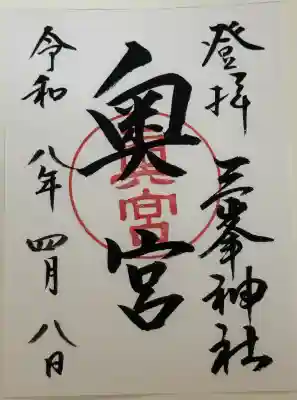 登拝
三峯神社
奥宮
奥宮
令和八年四月八日